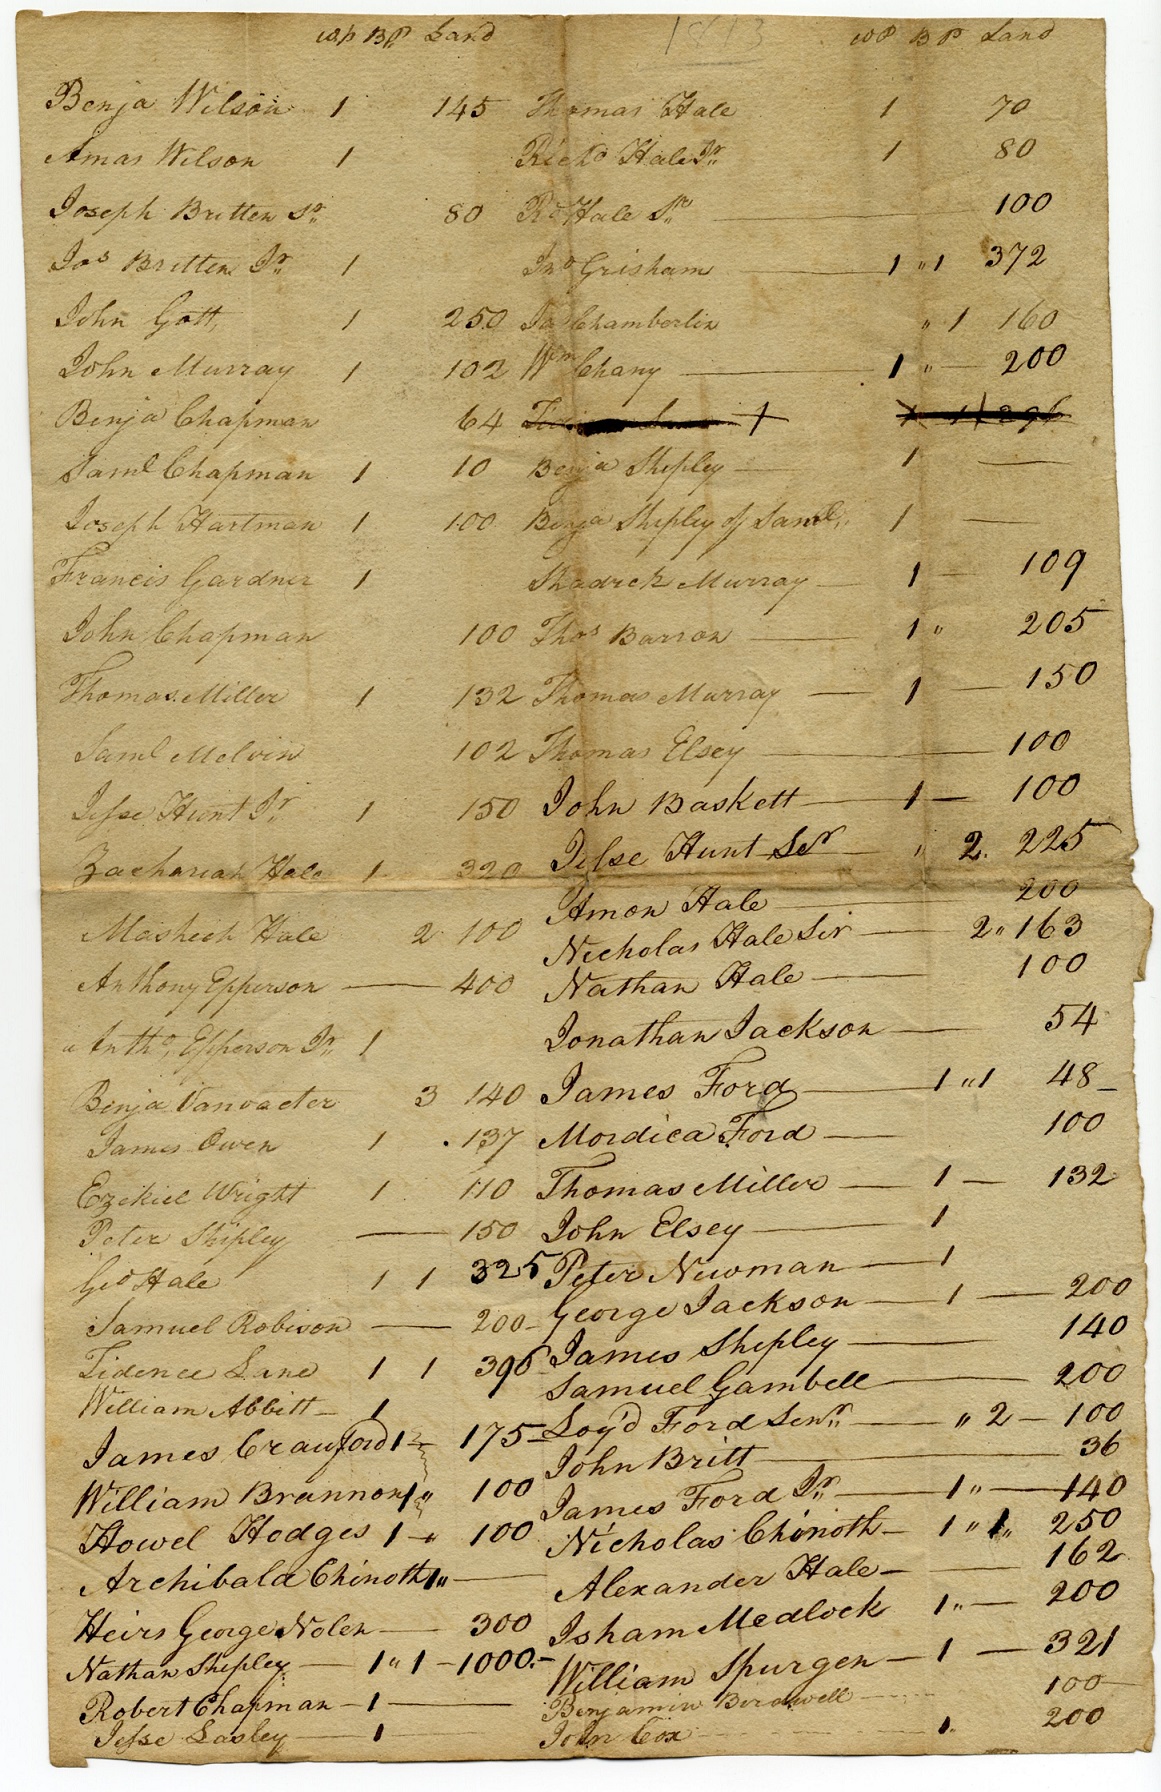 wp BP Land
Benja Wilson 1 145
Amas Wilson 1
Joseph Britten Sr. 80
Jos Britten Jr. 1
John Gott, 1 250
John Murray 1 102
Benja Chapman 64
Saml Chapman 1 10
Joseph Hartman 1 100
Francis Gardner 1
John Chapman 100
Thomas Miller 1 132
Saml Melvin 102
Jesse Hunt Jr 1 150
Zachariah Hale 1 320
Mashech Hale 2 100
Anthony Epperson — 400
Antho, Epperson Jr. 1
Benja Vanvacter 3 140
James Owen 1 137
Ezekiel Wright 1 110
Peter Shipley — 150
Geo Hale 1 1 325
Samuel Robison — 200
Tidence Lane 1 1 396
William Abbitt — 1
James Crauford 1 — 175
William Brannon 1 " 100
Howel Hodges 1 - " 100
Archibald Chinoth 1 " —
Heirs George Nolen — 300
Nathan Shipley — 1 " 1 — 1000.—
Robert Chapman — 1 —
Jesse Lasley — 1
1813
wP BP Land
Thomas Hale 1 70
Richd Hale Jr. 1 80
Rd Hale Sr. — 100
Jno Grisham — 1 " 1 372
Jas Chamberlin " 1 160
Wm Chany — 1 " — 200
Benja Shipley — 1 —
Benja Shipley of Saml " 1 —
Shadrck Murray — 1 — 109
Thos Barron — 1 " 205
Thomas Murray — 1 — 150
Thomas Elsey — 100
John Baskett — 1 — 100
Jesse Hunt Senr — " 2. 225
Amon Hale — 200
Nicholas Hale Sir — 2 " 163
Nathan Hale — 100
Jonathan Jackson — 54
James Ford — 1 " 1 48 —
Mordica Ford — 100
Thomas Miller — 1 — 132
John Elsey — 1
Peter Newman — 1
George Jackson — 1 — 200
James Shipley — 140
Samuel Gambell — 200
Loy'd Ford Senr. — " 2 — 100
John Britt — 36
James Ford Jr. — 1 " — 140
Nicholas Chinoth — 1 " 1 " 250
Alexander Hale — 162
Isham Medlock 1 " — 200
William Spurgen — 1 — 321
Benjamin Birdwell — 100
John Cox 1. 200